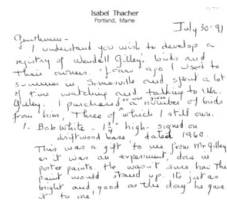 Isabel Thacher
Portland, Maine
July 30 - 91
Gentlemen -
I understand you wish to develop a
registry of Wendell Gilley birds and
their owners. Years ago I used to
summer in Somesville and spend a lot
of time watching and talking to Mr.
Gilley. I purchased a number of birds
from him, Three of which I still own.
1. Bob White - 1 ½" high signed on
driftwood base dated 1960.
This was a gift to me from Mr Gilley
as it was an experiment, done in
poster paints. He wasn't sure how the
paint would stand up. Its just as
bright and good as the day he gave
it to me!